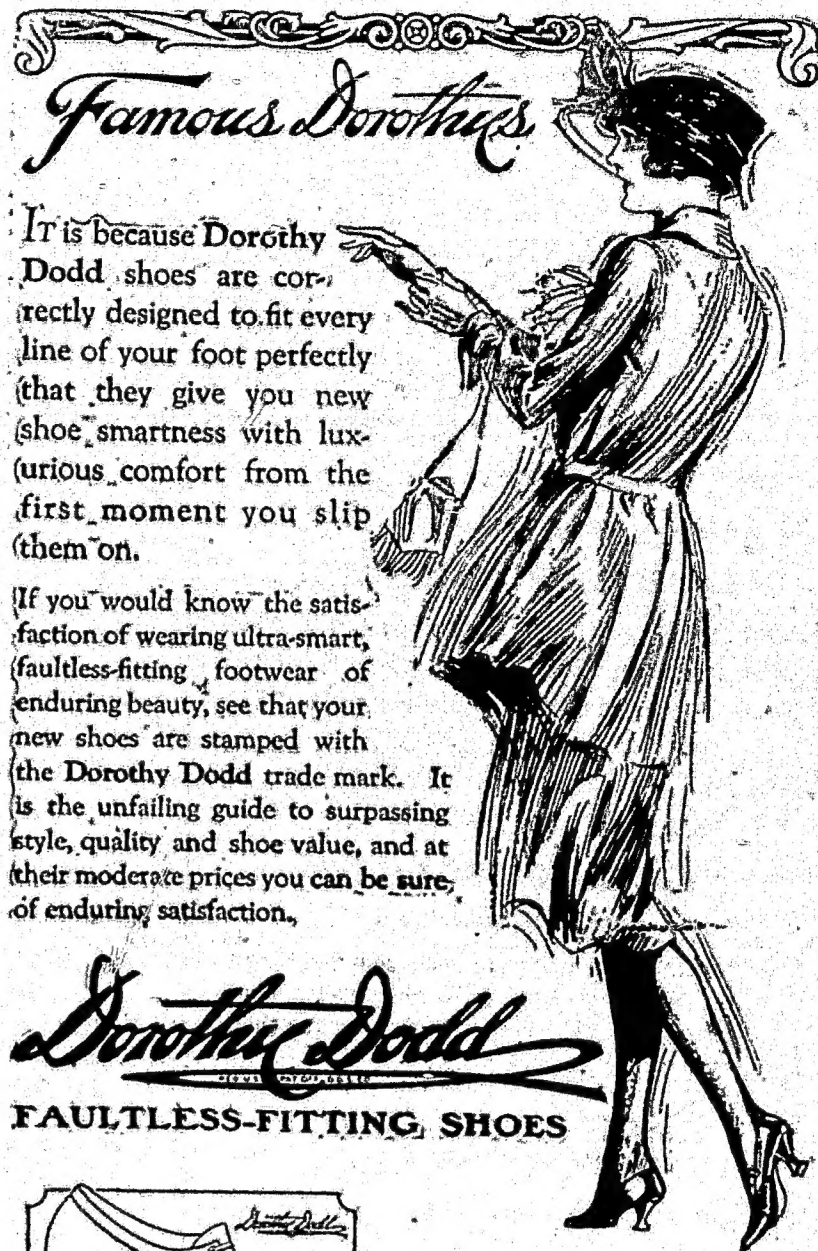 Famous Dorothys
IT is because Dorothy
Dodd shoes are cor-
rectly designed to fit every
line of your foot perfectly
that they give you new
shoe smartness with lux-
urious comfort from the
first moment you slip
them on.
If you would know the satis-
faction of wearing ultra-smart,
faultless-fitting footwear of
enduring beauty, see that your
new shoes are stamped with
the Dorothy Dodd trade mark. It
is the unfailing guide to surpassing
style, quality and shoe value, and at
their moderate prices you can be sure
of enduring satisfaction.
Dorothy Dodd
FAULTLESS-FITTING SHOES
Dorothy Dodd